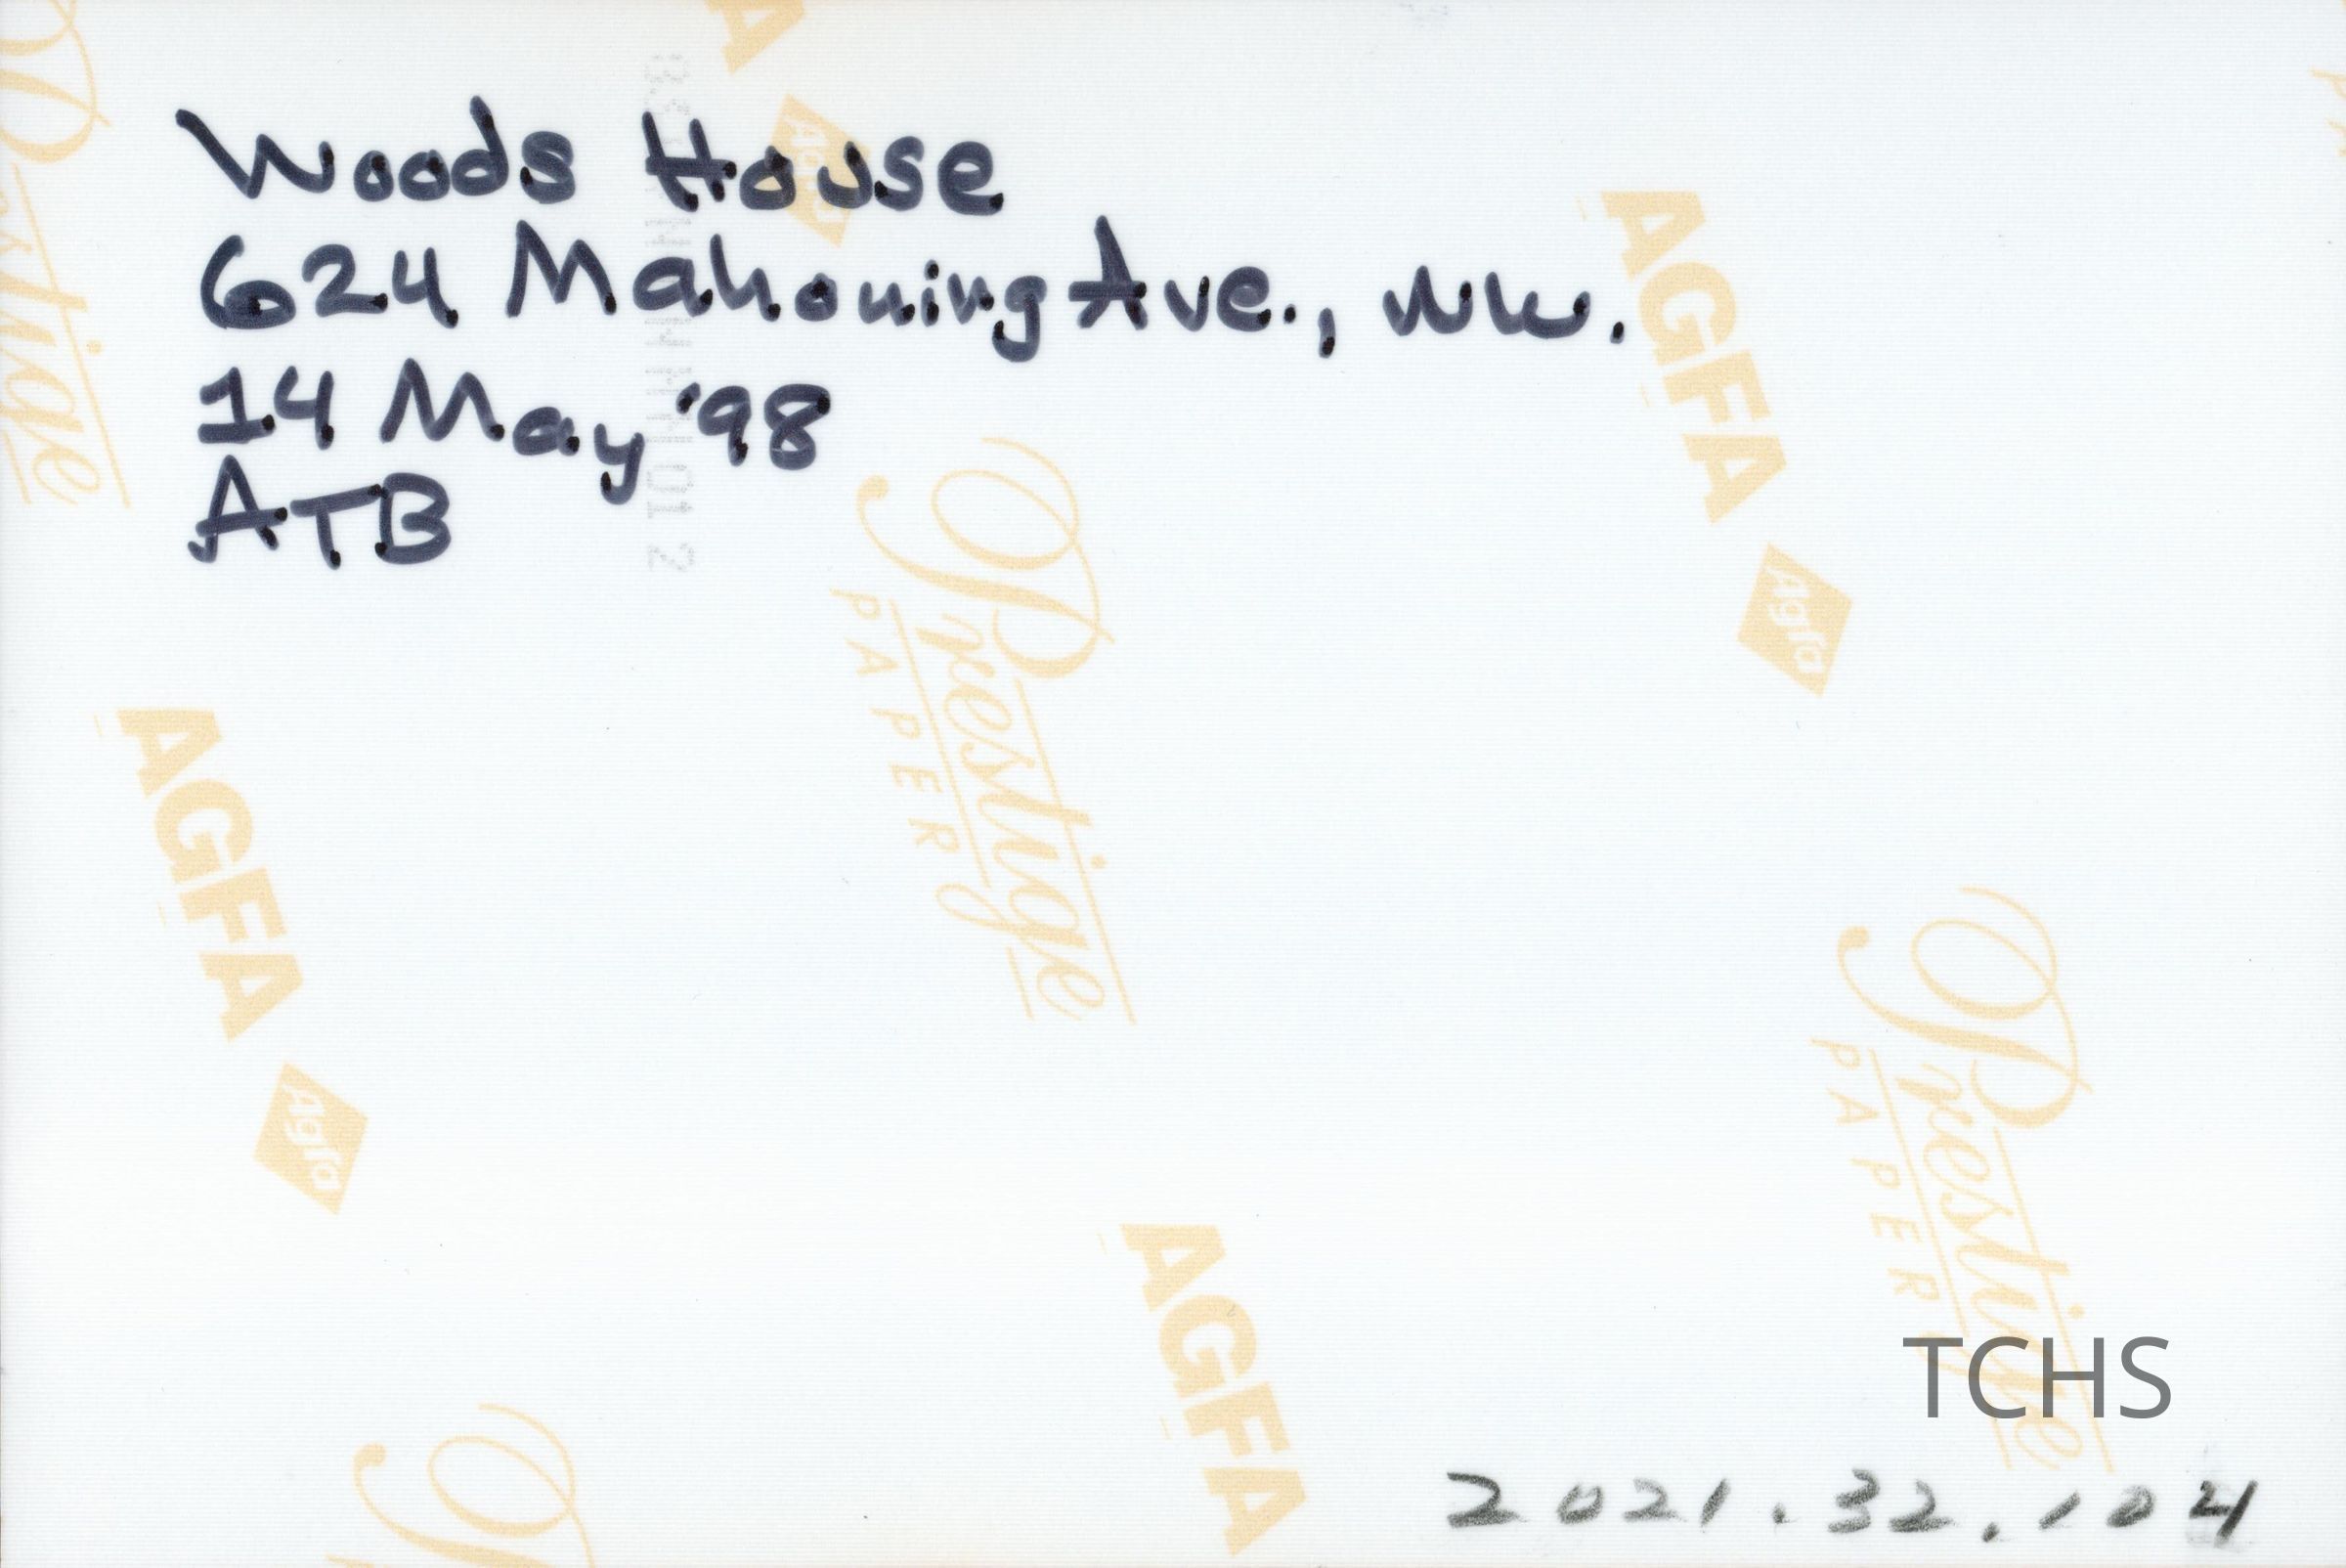 Woods House
624 Mahoning Ave., NW.
14 May '98
ATB
AGFA
Agfa
Prestige
PAPER
AGFA
Agfa
Prestige
PAPER
AGFA
Agfa
Prestige
AGFA
TCHS
2021.32.104